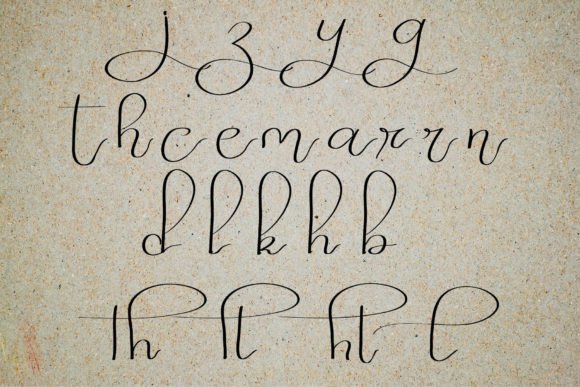 j z y g
t h c e m a r r n
d l k h b
th lt ht l